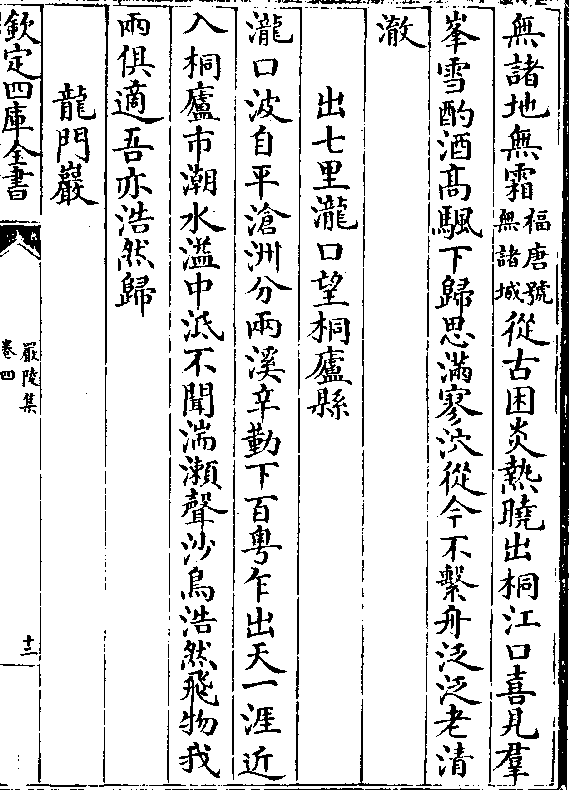 無諸地無霜福唐號無諸城從古困炎熱曉出桐江口喜見羣
峯雪酌酒髙颿下歸思滿寥泬從今不繫舟泛泛老清
澈
出七里瀧口望桐廬縣
瀧口波自平滄洲分兩溪辛勤下百粤乍出天一涯近
入桐廬市潮水溢中泜不聞湍瀬聲沙鳥浩然飛物我
兩俱適吾亦浩然歸
龍門巖
欽定四庫全書
嚴陵集
卷四
十三